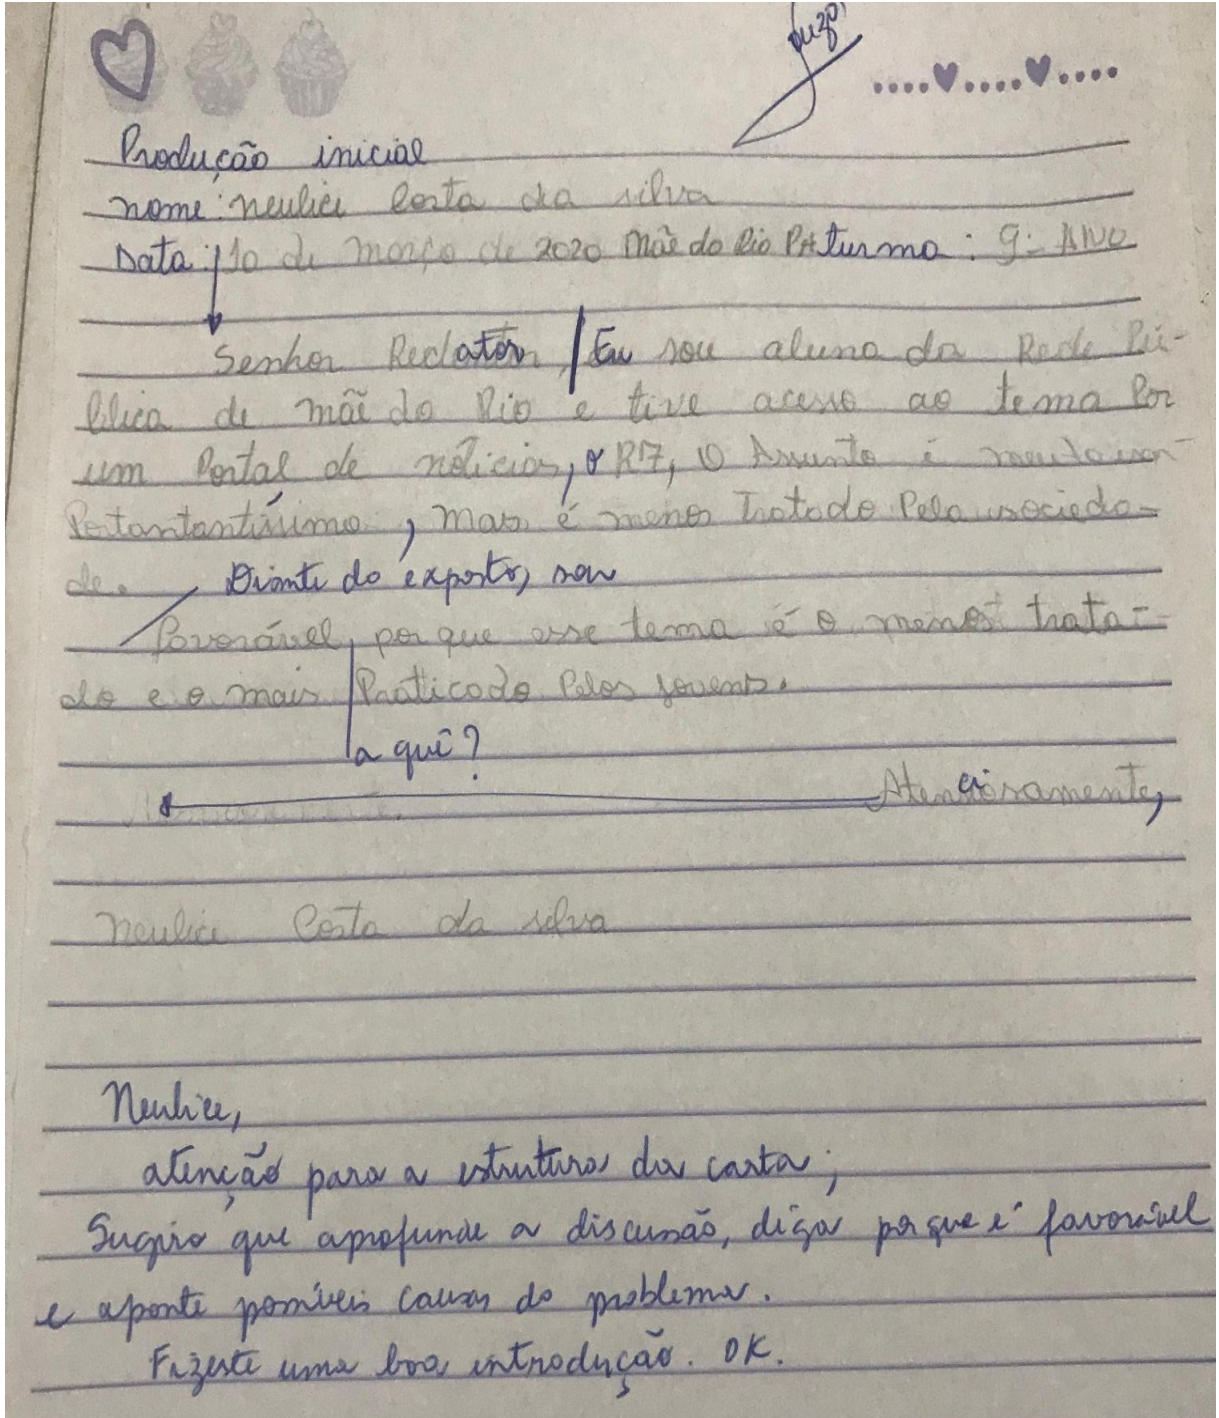 Produção inicial
nome: neulice Costa da silva
Data: 10 de março de 2020 Mãe do Rio PA turma: 9º ANO
Senhor Redator, / Eu sou aluna da Rede Pú-
blica de mãe do Rio e tive acesso ao tema Por
um Portal de notícias, o R7, O Assunto é
Portantantíssimo, mas é menos Tratado Pela socieda-
de. Diante do exposto, sou
favorável, por que esse tema é o menos trata-
do e o mais Praticado Pelos jovens.
a quê?
Atenciosamente,
neulice Costa da silva
Neulice,
atenção para a estrutura da carta;
Sugiro que aprofunde a discussão, diga por que é favorável
e aponte possíveis causas do problema.
Fizeste uma boa introdução. OK.